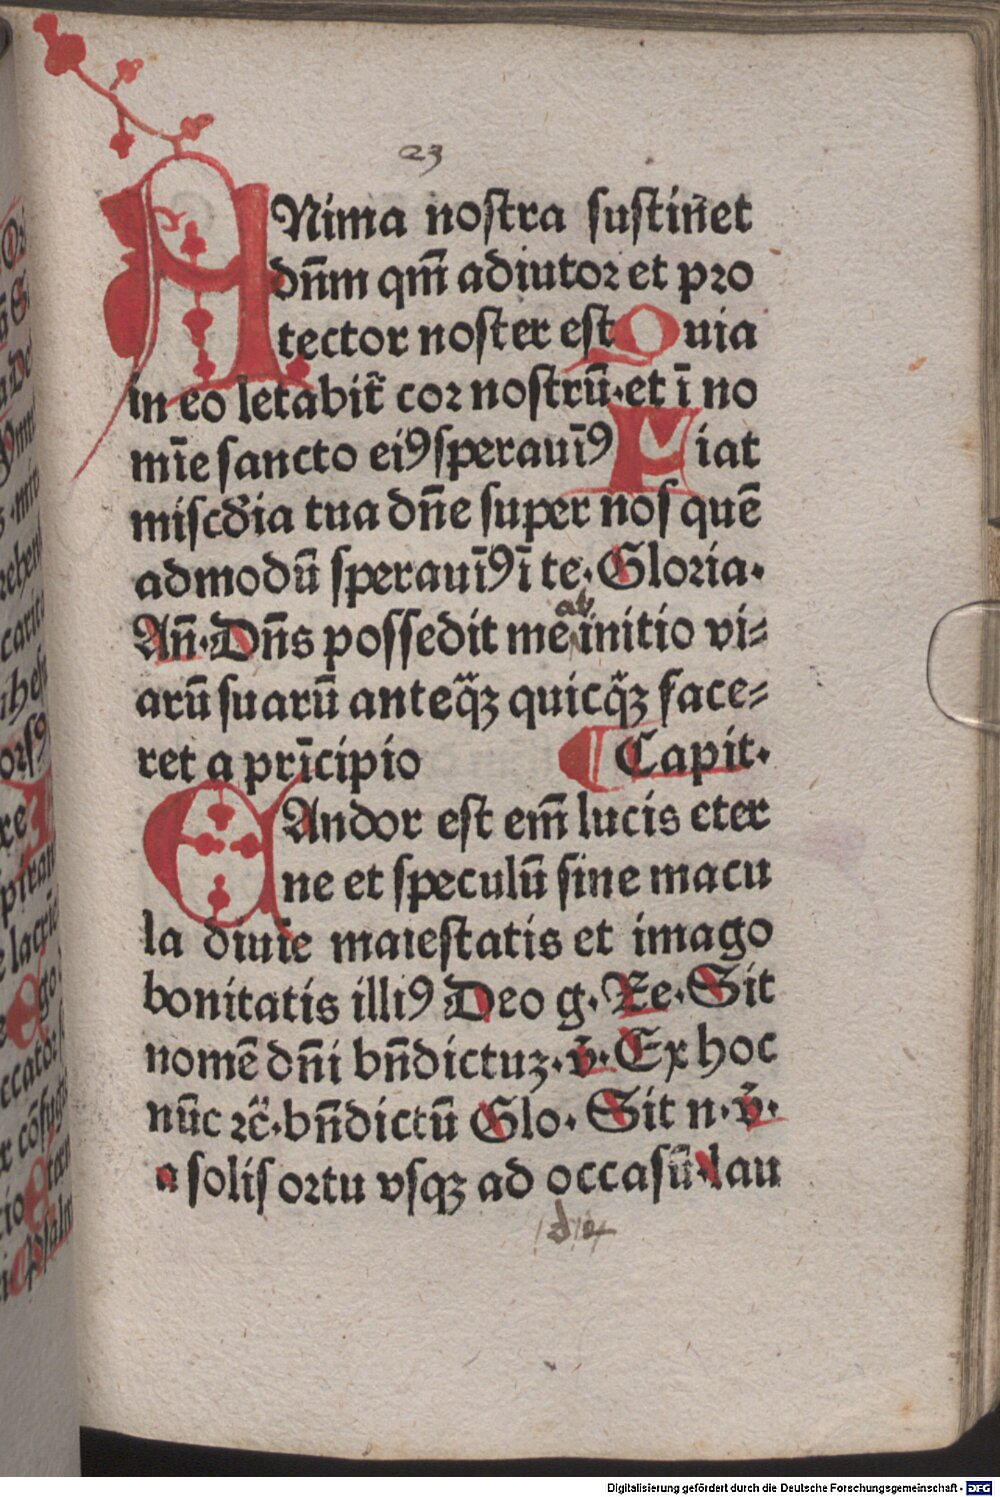 23
ANima nostra sustin̄et
dn̄m qm̄ adiutor et pro
tector noster est Quia
in eo letabit̄ cor nostrū·et ī no
mīe sancto eiꝰ sperauīꝰ Fiat
misc̄dia tua dn̄e super nos quē
admodū sperauīꝰ ī te·Gloria·
ab
An̄·Dn̄s possedit me initio vi⸗
arū suarū anteq̄ꝫ quicq̄ꝫ face⸗
ret a prīcipio Capit·
CAndor est em̄ lucis eter
ne et speculū sine macu
la diuīe maiestatis et imago
bonitatis illiꝰ Deo g·Re·Sit
nomē dn̄i bn̄dictuꝫ·v̄·Ex hoc
nūc ⁊c̄·bn̄dictū Glo·Sit n·v̄·
a solis ortu vsqꝫ ad occasū·lau
Digitalisierung gefördert durch die Deutsche Forschungsgemeinschaft - DFG